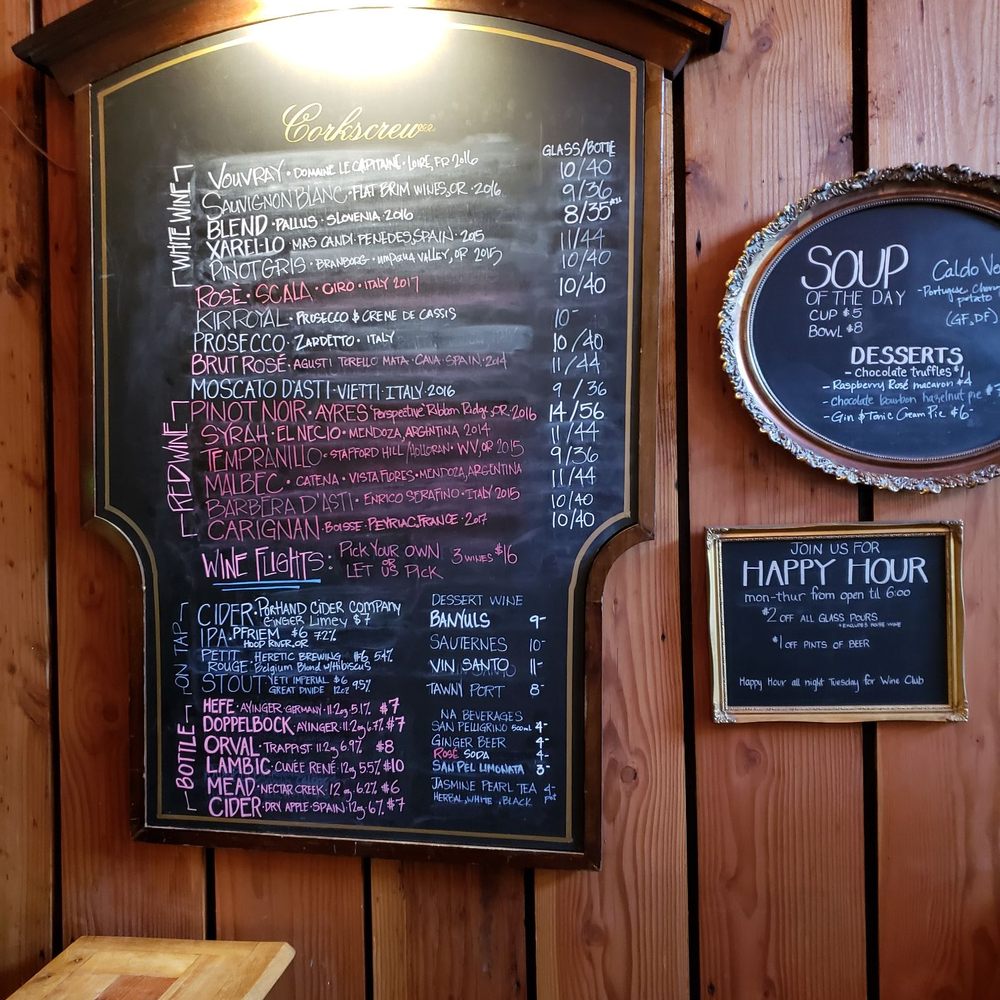 Corkscrew
GLASS/BOTTLE
WHITE WINE
VOUVRAY · DOMAINE LE CAPITAINE · LOIRE, FR 2016 10/40
SAUVIGNON BLANC · FLAT BRIM WINES, OR · 2016 9/36
BLEND · PALLUS · SLOVENIA · 2016 8/35
XAREL·LO · MAS CANDI · PENEDES, SPAIN · 2015 11/44
PINOT GRIS · BRANBORG · UMPQUA VALLEY, OR 2015 10/40
ROSÈ · SCALA · CIRO · ITALY 2017 10/40
KIR ROYAL · PROSECCO & CREME DE CASSIS 10-
PROSECCO · ZARDETTO · ITALY 10/40
BRUT ROSÉ · AGUSTI TORELLO MATA · CAVA · SPAIN · 2014 11/44
MOSCATO D'ASTI · VIETTI · ITALY · 2016 9/36
RED WINE
PINOT NOIR · AYRES Perspective Ribbon Ridge, OR · 2016 14/56
SYRAH · EL NECIO · MENDOZA, ARGENTINA 2014 11/44
TEMPRANILLO · STAFFORD HILL/Holloran · WV, OR 2015 9/36
MALBEC · CATENA · VISTA FLORES · MENDOZA, ARGENTINA 11/44
BARBERA D'ASTI · ENRICO SERAFINO · ITALY 2015 10/40
CARIGNAN · BOISSE · PEYRIAC, FRANCE · 2017 10/40
WINE FLIGHTS: PICK YOUR OWN
OR 3 WINES $16
LET US PICK
ON TAP
CIDER · PORTLAND CIDER COMPANY
GINGER LIMEY $7
IPA · PFRIEM $6 7.2%
HOOD RIVER, OR
PETIT HERETIC BREWING $6 5.4%
ROUGE · Belgium Blond w/Hibiscus
STOUT YETI IMPERIAL $6 9.5%
GREAT DIVIDE 12oz
BOTTLE
HEFE · AYINGER · GERMANY · 11.2oz 5.1% $7
DOPPELBOCK · AYINGER · 11.2oz 6.7% $7
ORVAL · TRAPPIST · 11.2oz 6.9% $8
LAMBIC · CUVÉE RENÉ · 12oz 5.5% $10
MEAD · NECTAR CREEK · 12oz 6.2% $6
CIDER · DRY APPLE · SPAIN · 12oz 6% $7
DESSERT WINE
BANYULS 9-
SAUTERNES 10-
VIN SANTO 11-
TAWNY PORT 8-
NA BEVERAGES
SAN PELLIGRINO 500ml 4-
GINGER BEER 4-
ROSÉ SODA 4-
SAN PEL LIMONATA 3-
JASMINE PEARL TEA 4-
HERBAL, WHITE, BLACK pot
SOUP
OF THE DAY
CUP $5
BOWL $8
Caldo Ve
-Portugese
potato
(GF, DF)
DESSERTS
- chocolate truffles $1
- Raspberry Rosé macaron $4
- chocolate bourbon hazelnut pie
- Gin & Tonic Cream Pie $6-
JOIN US FOR
HAPPY HOUR
mon-thur from open til 6:00
$2 OFF ALL GLASS POURS
*EXCLUDES HOUSE WINE
$1 OFF PINTS OF BEER
Happy Hour all night Tuesday for Wine Club